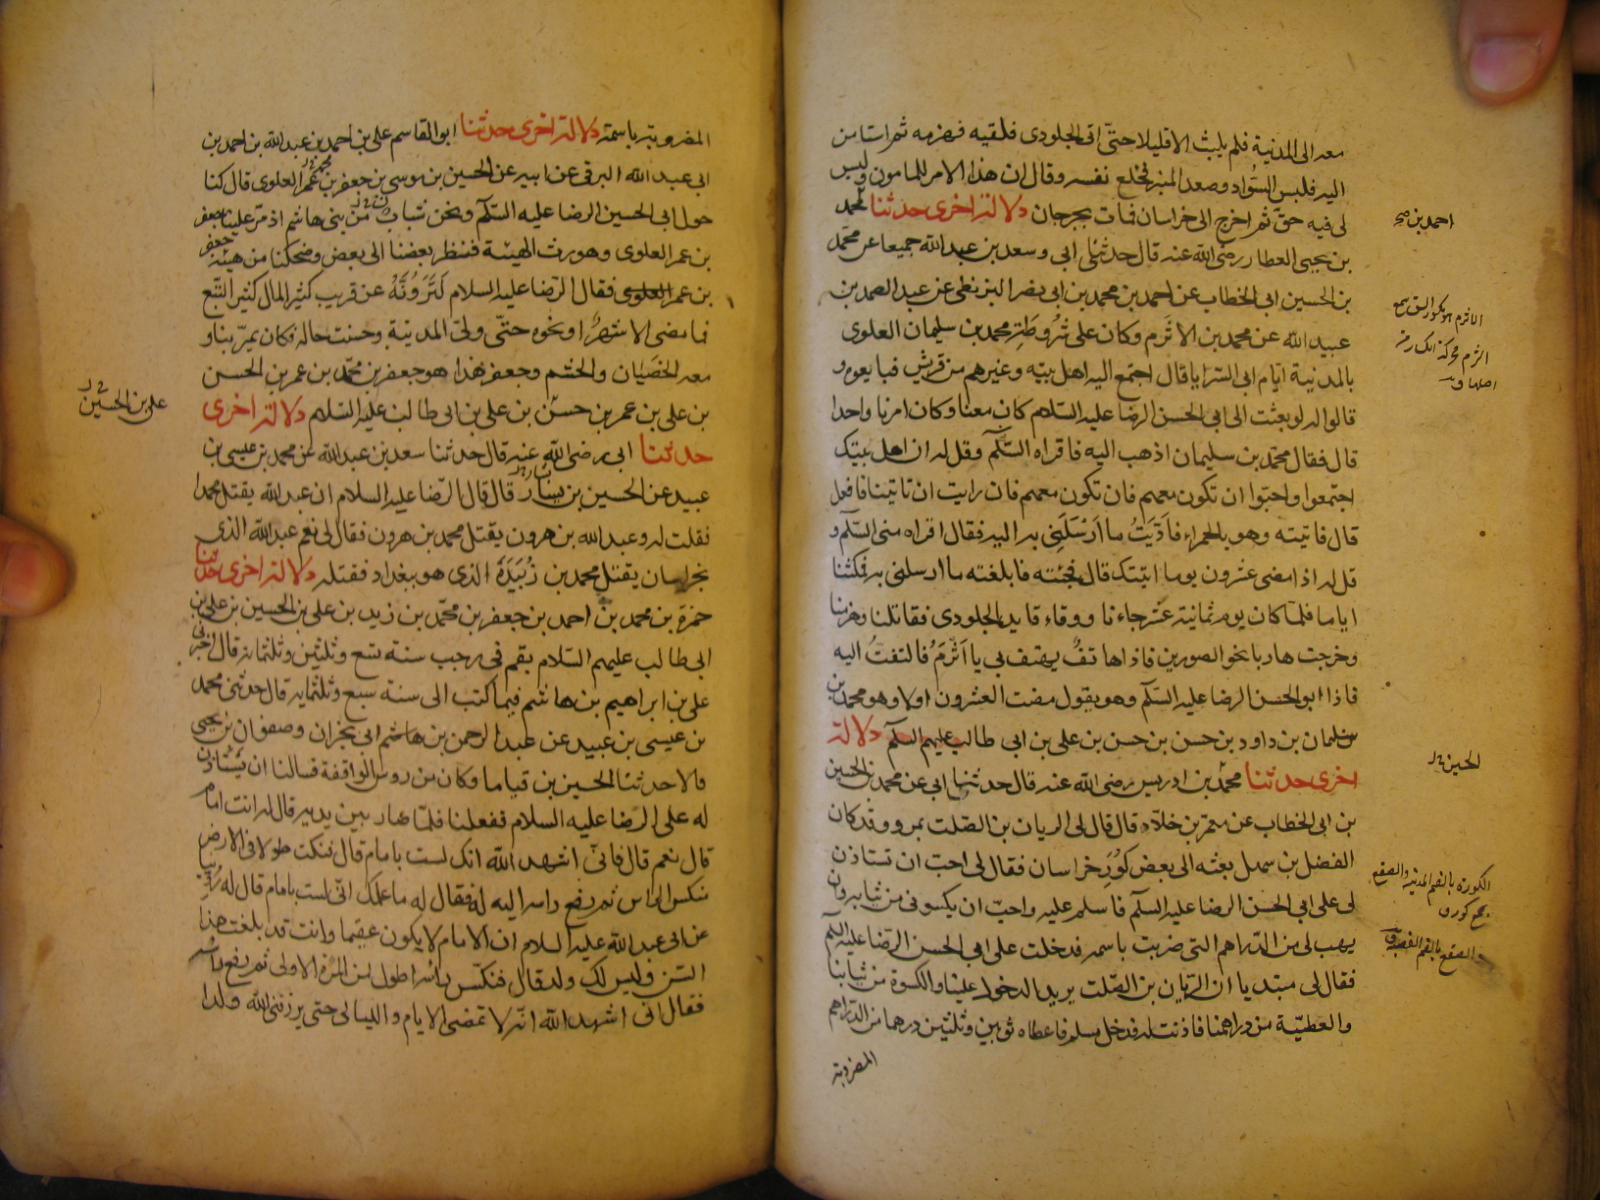 معه الى المدنية فلم يلبث الا قليلا حتّى اتى الجلودى فلقيه فهزمه ثم استامن
اليه فلبس السَّواد وصعد المنبر فخلع نفسه وقال ان هذا الامر للمامون وليس
لى فيه حق ثم اخرج الى خراسان فمات بجرجان دلالة اخرى حدثنا محمد
بن يحيى العطار رضى الله عنه قال حدثنى ابى وسعد بن عبد الله جميعا عن محمّد
بن الحسين ابى الخطاب عن احمد بن محمد بن ابى نصر البزنطى عن عبد الصمد بن
عبيد الله عن محمد بن الاثرم وكان على شُرْوطَةِ محمد بن سليمان العلوى
بالمدنية ايام ابى السرايا قال اجتمع اليه اهل بيته وغيرهم من قريش فبايعوه و
قالوا له لو بعثت الى ابى الحسن الرضا عليه السلام كان معنا وكان امرنا واحدا
قال فقال محمّد بن سليمان اذهب اليه فاقراه السّلم وقل له ان اهل بيتك
اجتمعوا واحبّوا ان تكون معهم فان تكون معهم فان رايت ان تاتينا فافعل
قال فاتيته وهو بالحمراء فادَّيَتُ ما اَرْسَلَنِى به اليه فقال اقراه منى السّلم و
قل له اذا مضى عشرون يوما اتيتك قال فجئته فابلغته ما ارسلنى به فمكثنا
اياما فلمّا كان يوم ثمانية عشر جاءنا ووقاء قايد الجلودى فقاتلنا وهزمنا
وخرجت هاربا نحو الصورين فاذا هاتفٌ يهتف بى يا اَثْرَمُ فالتفتُ اليه
فاذا ابو الحسن الرضا عليه السّلم وهو يقول مضت العشرون اولا وهو محمد بن
سليمان بن داود بن حسن بن حسن بن على بن ابى طالب عليهم السلم دلالة
اخرى حدثنا محمّد بن ادريس رضى الله عنه قال حدثنا ابى عن محمد بن الحسين
بن ابى الخطاب عن معمّر بن خلّاد قال قال لى الريان بن الصّلت بمرو وقد كان
الفضل بن سهل بعثه الى بعض كُوَرِ خراسان فقال لى احبّ ان تستاذن
لى على ابى الحسن الرضا عليه السّلم فاسلم عليه واحبّ ان يكسونى من ثيابه وان
يهب لى من الدّراهم التى ضربت باسمه فدخلت على ابى الحسن الرّضا عليه السلم
فقال لى مبتديا ان الريّان بن الصّلت يريد الدخول علينا والكسوة من ثيابنا
والعطيّة من دراهمنا فاذنت له فدخل وسلم فاعطاه ثوبين وثلثين درهما من الدّراهم
المضروبة
احمد بن
الحسين
الكورة بالضم المدنية والصقع
جمع كور
المضروبة باسمه دلالة اخرى حدثنا ابو القاسم على بن احمد بن عبد الله بن احمد بن
ابى عبد الله البرقى عن ابيه عن الحسين بن موسى بن جعفر بن محمد العلوى قال كنا
حول ابى الحسن الرضا عليه السّلم ونحن شباب من بنى هاشم اذ مرّ علينا جعفر
بن عمر العلوى وهو رث الهيئة فنظر بعضنا الى بعض وضحكنا من هيئة جعفر
بن عمر العلوى فقال الرّضا عليه السلام لَتَرَوُنَّهُ عن قريب كثير المال كثير التّبع
فما مضى الا شهرٌ او نحوه حتّى ولّى المدنية وحسنت حاله فكان يمرّ بنا و
معه الخصيان والحشم وجعفر هذا هو جعفر بن محمّد بن عمر بن الحسن
بن على بن عمر بن حسن بن على بن ابى طالب عليه السّلام دلالة اخرى
حدثنا ابى رضى الله عنه قال حدثنا سعد بن عبد الله عن محمد بن عيسى بن
عبيد عن الحسين بن بشار قال قال الرّضا عليه السلام ان عبد الله يقتل محمدا
فقلت له وعبد الله بن هرون يقتل محمد بن هرون فقال لى نعم عبد الله الذى
بخراسان يقتل محمد بن زُبَيدَةَ الذى هو ببغداد فقتله دلالة اخرى حدثنا
حمزة بن محمد بن احمد بن جعفر بن محمّد بن زيد بن على بن الحسين بن على بن
ابى طالب عليهم السّلام بقم فى رجب سنة تسع وثلثين وثلثمائة قال اخبرنى
على بن ابراهيم بن هاشم فيما كتب الى سنة سبع وثلثماية قال حدثنى محمد
بن عيسى بن عبيد عن عبد الرحمن بن هاشم ابى نجران وصفوان بن يحيى
قالا حدثنا الحسين بن قياما وكان من روس الواقفة فسالنا ان نستاذن
له على الرّضا عليه السلام ففعلنا فلمّا صار بين يديه قال له انت امام
قال نعم قال فانّى اشهد الله انك لست بامام قال فنكت طولا فى الارض
منكس الراس ثم رفع راسه اليه فقال له ما علمك انّى لست بامام قال له
عن ابى عبد الله عليه السلام ان الامام لا يكون عقيما وانت قد بلغت هذا
السّن وليس لك ولد قال فنكّس راسه اطول من المرّة الاولى ثم رفع راسه
فقال انى اشهد الله انّه لا تمضى الايام والليالى حتى يرزقنى الله ولدا
على بن الحسين